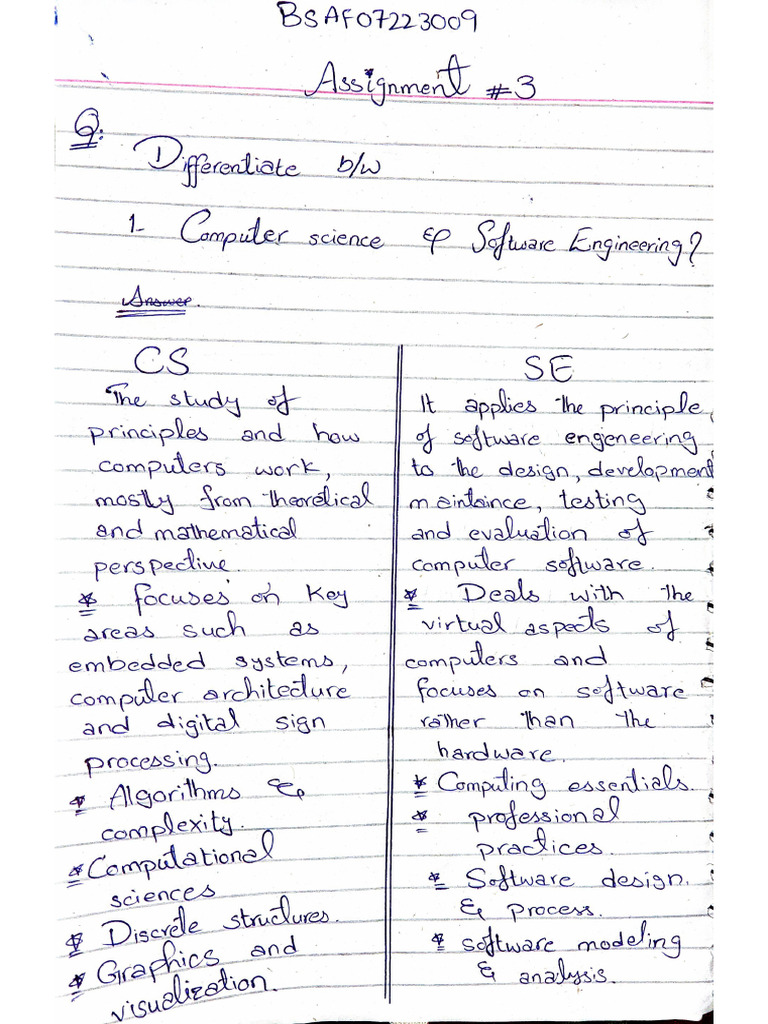 BSAF07223009
Assignment #3
Q:
Differentiate b/w
1- Computer science & Software Engineering?
Answer.
CS
The study of
principles and how
computers work,
mostly from theoretical
and mathematical
perspective.
* focuses on key
areas such as
embedded systems,
computer architecture
and digital sign
processing.
* Algorithms &
complexity.
* Computational
sciences
* Discrete structures.
* Graphics and
visualization.
SE
It applies the principle
of software engeneering
to the design, development
maintaince, testing
and evaluation of
computer software.
* Deals with the
virtual aspects of
computers and
focuses on software
rather than the
hardware.
* Computing essentials.
* professional
practices.
* Software design.
& process.
* software modeling
& analysis.